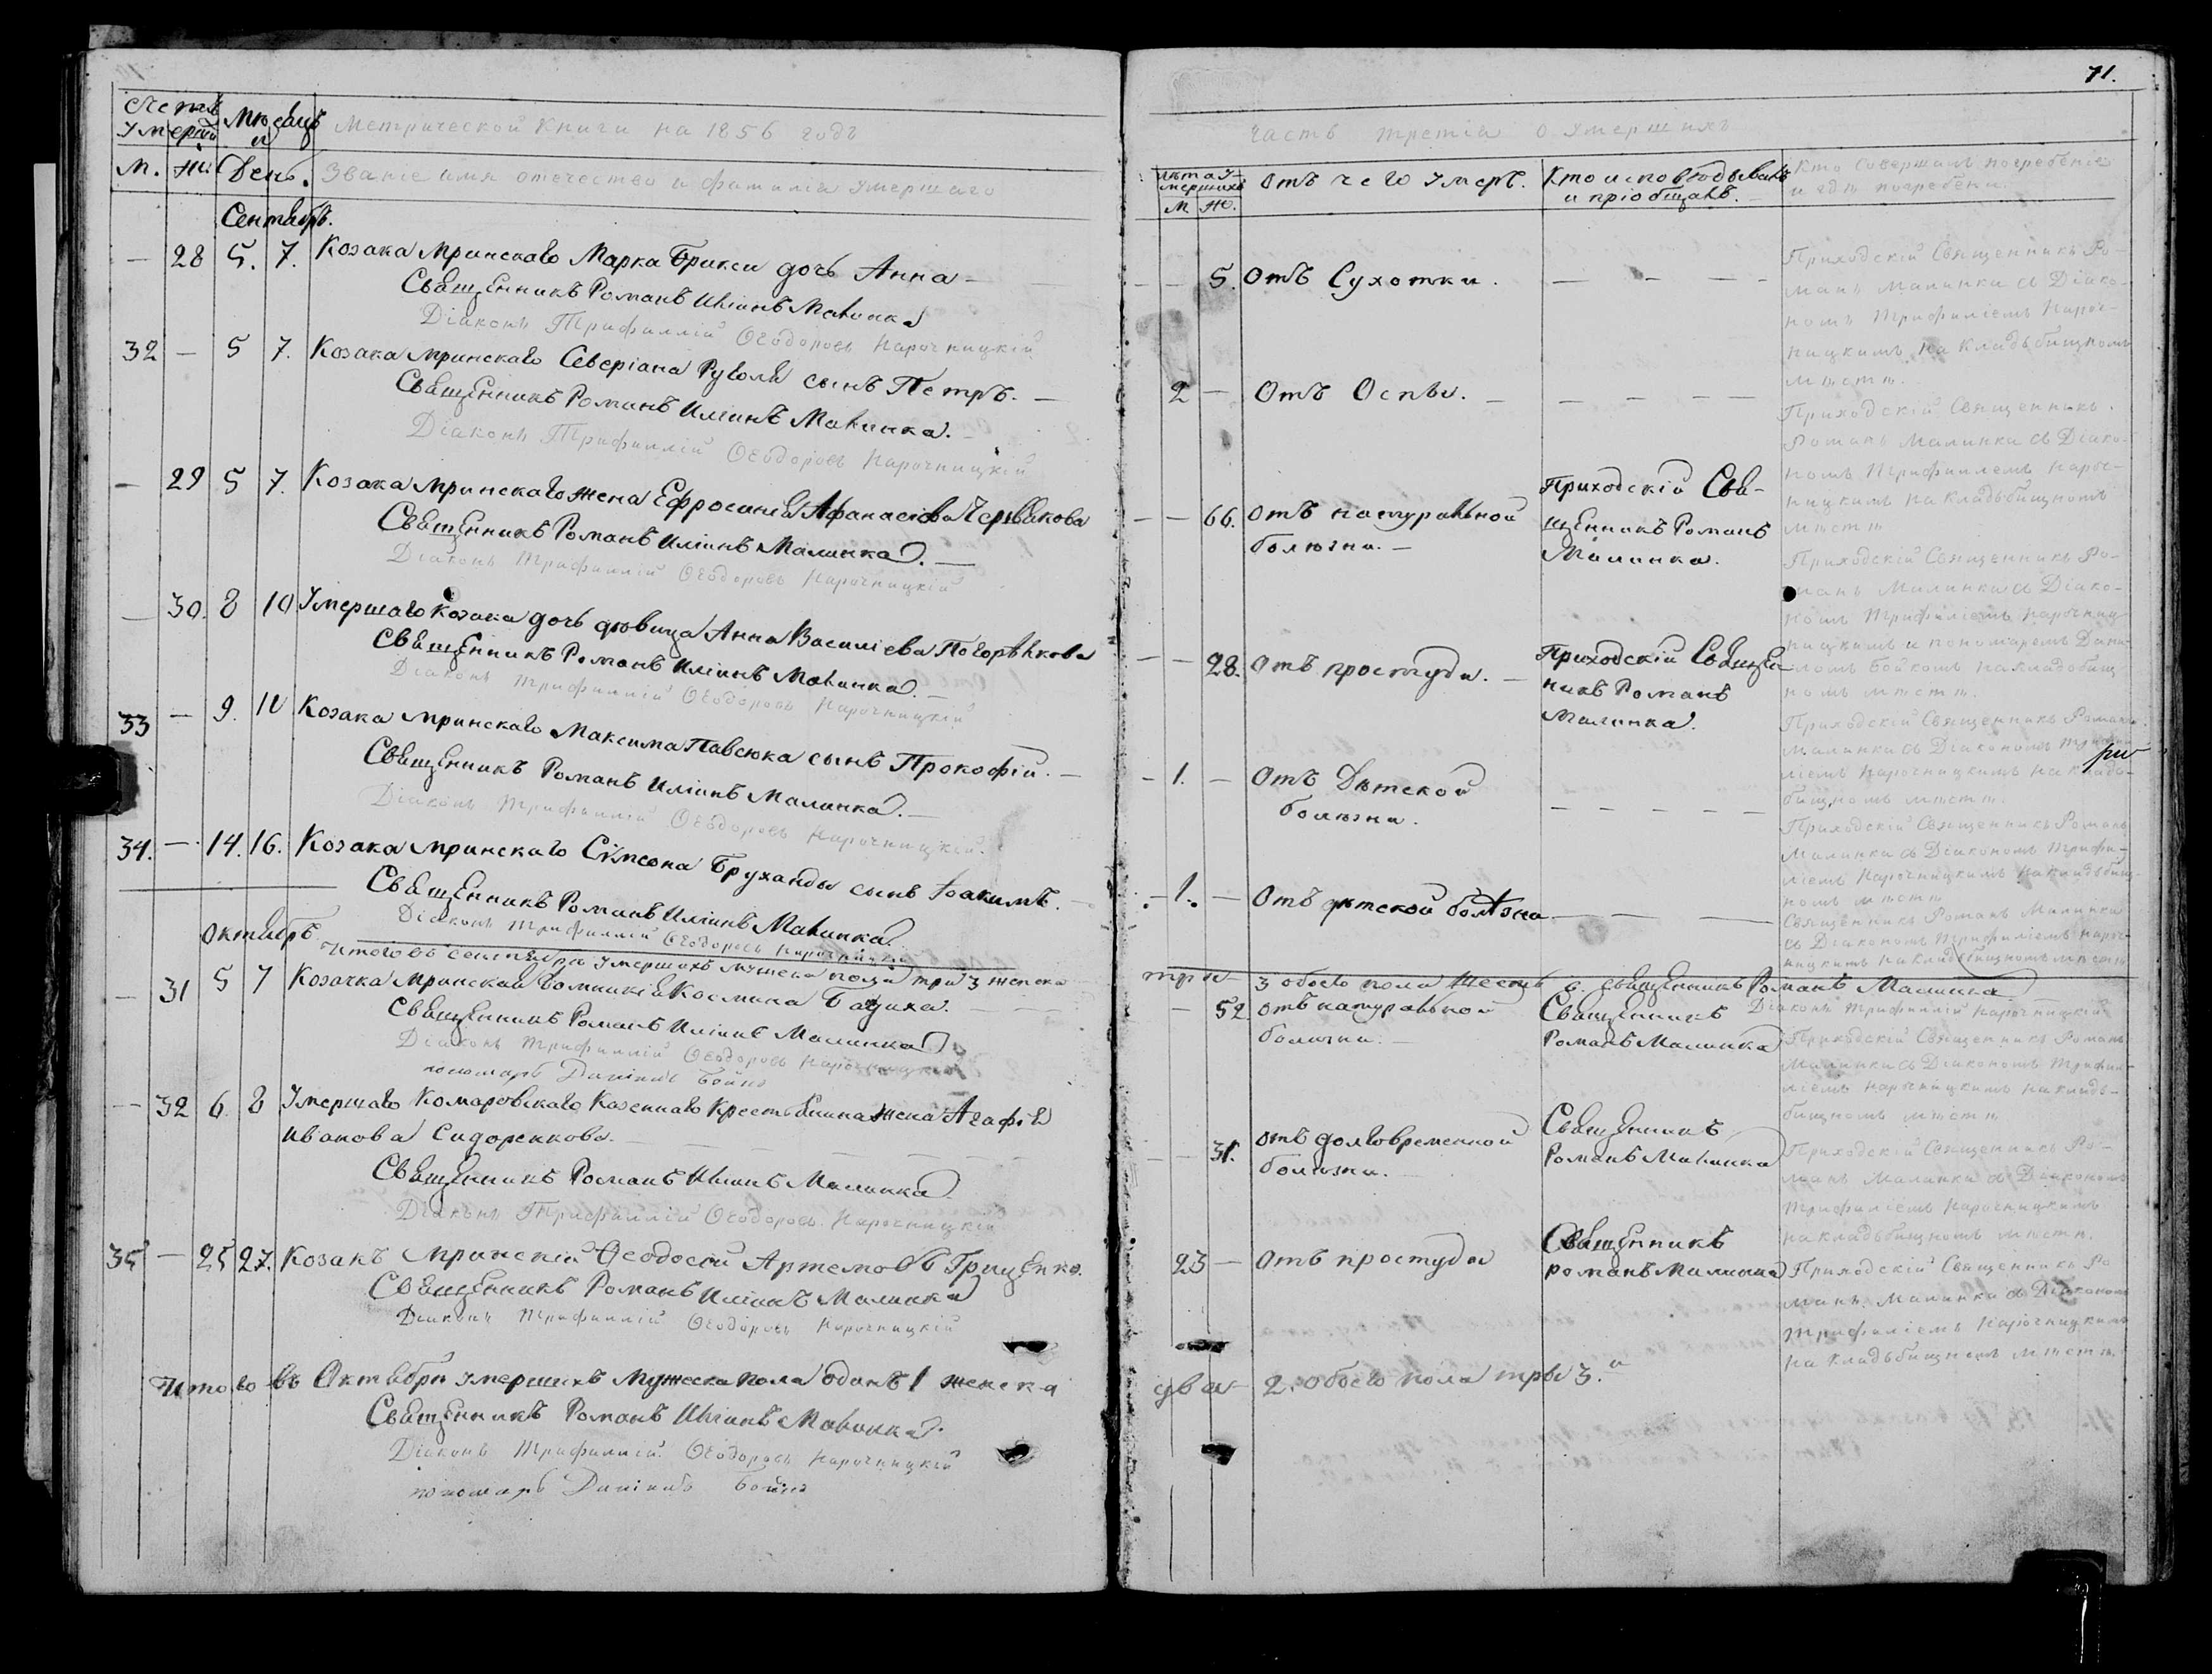 Счетъ
Умершихъ
Мѣсяцъ
и
День.
М. Ж.
Метрической Книги на 1856 годъ
Званіе имя отечество и фамилія умершаго
Сентябрь.
— 28 5. 7. Козака Мринскаго Марка Брикси дочь Анна —
Священникъ Романъ Иліинъ Малинка
Діаконъ Трифиллій Ѳеодоровъ Нарочницкій
32 — 5 7. Козака Мринскаго Северіана сынъ Петръ. —
Священникъ Романъ Иліинъ Малинка.
Діаконъ Трифиллій Ѳеодоровъ Нарочницкій
— 29 5 7. Козака Мринскаго жена Ефросинія Афанасіова Червякова
Священникъ Романъ Иліинъ Малинка. —
Діаконъ Трифиллій Ѳеодоровъ Нарочницкій
— 30. 8 10 Умершаго Козака дочь дѣвица Анна Василіева Погорѣлкова
Священникъ Романъ Иліинъ Малинка. —
Діаконъ Трифиллій Ѳеодоровъ Нарочницкій
33 — 9. 10 Козака Мринскаго Максима Павсюка сынъ Прокофій. —
Священникъ Романъ Иліинъ Малинка. —
Діаконъ Трифиллій Ѳеодоровъ Нарочницкій.
34. — 14. 16. Козака Мринскаго Сімеона Бруханды сынъ Іоакимъ.
Священникъ Романъ Иліинъ Малинка.
Діаконъ Трифиллій Ѳеодоровъ Нарочницкій
Октябрь
Итого въ Сентябрѣ умершихъ мужеска пола три 3 женска
— 31 5 7 Козачка Мринская Космина
Священникъ Романъ Иліинъ Малинка
Діаконъ Трифиллій Ѳеодоровъ Нарочницкій
пономарь Даніилъ Бойко
— 32 6. 8 Умершаго Комаровскаго Казеннаго Крестьянина жена Агафія
Иванова Сидоренкова. —
Священникъ Романъ Иліинъ Малинка
Діаконъ Трифиллій Ѳеодоровъ Нарочницкій
35 — 25 27. Козакъ Мринскій Ѳеодосій Артемовъ Гриценко.
Священникъ Романъ Иліинъ Малинка
Діаконъ Трифиллій Ѳеодоровъ Нарочницкій
Итого въ Октябрѣ умершихъ Мужеска пола одинъ 1 женска
Священникъ Романъ Иліинъ Малинка.
Діаконъ Трифиллій Ѳеодоровъ Нарочницкій
пономарь Даніилъ Бойко
71.
Часть третія о Умершихъ
Лѣта У-
мершихъ
М. Ж.
Отъ чего Умеръ.
Кто исповѣдывалъ
и пріобщалъ. —
Кто совершалъ погребеніе
и гдѣ погребены.
— — 5. Отъ Сухотки. — — — —
Приходскій Священникъ Ро-
манъ Малинка съ Діако-
номъ Трифиліемъ Нароч-
ницкимъ, на Кладьбищномъ
мѣстѣ.
2 — Отъ Оспы. — — — — —
Приходскій Священникъ.
Романъ Малинка съ Діако-
номъ Трифиллемъ Нароч-
ницкимъ на Кладьбищномъ
мѣстѣ
— — 66. Отъ натуральной
болѣзни. —
Приходскій Свя-
щенникъ Романъ
Малинка.
Приходскій Священникъ Ро-
манъ Малинка съ Діако-
номъ Трифиліемъ Нарочниц-
ницкимъ и пономаремъ Дани-
ломъ Бойкомъ на кладбищ
номъ мѣстѣ.
— — 28. Отъ простуды. —
Приходскій Священ-
никъ Романъ
Малинка.
Приходскій Священникъ Романъ.
Малинка съ Діакономъ Трифи
ліемъ Нарочницкимъ на Кладь-
бищномъ мѣстѣ.
— 1. — Отъ Дѣтской
болѣзни. — — — — —
Приходскій Священникъ Романъ
Малинка съ Діакономъ Трифи-
ліемъ Нарочницкимъ на кладьбищ-
номъ мѣстѣ
— 1. — Отъ дѣтской болѣзни — — —
Священникъ Романъ Малинка
съ Діакономъ Трифиліемъ Нароч-
ницкимъ на Кладьбищномъ мѣстѣ
три — 3 обоего пола шесть 6. Священникъ Романъ Малинка
Діаконъ Трифиллій Нарочницкій
— 52 отъ натуральной
болѣзни. —
Священникъ
Романъ Малинка
Приходскій Священникъ Романъ
Малинка съ Діакономъ Трифи-
ліемъ Нарочницкимъ на кладь-
бищномъ мѣстѣ
— — 31. отъ долговременной
болѣзни. —
Священникъ
Романъ Малинка
Приходскій Священникъ Ро-
манъ Малинка съ Діакономъ
Трифиліемъ Нарочницкимъ
на кладьбищномъ мѣстѣ.
23 — Отъ простуды
Священникъ
романъ Малинка
Приходскій Священникъ Ро
манъ. Малинка съ Діакономъ
Трифиліемъ Нарочницкимъ
на Кладьбищномъ мѣстѣ.
два — 2. обоего пола три 3.